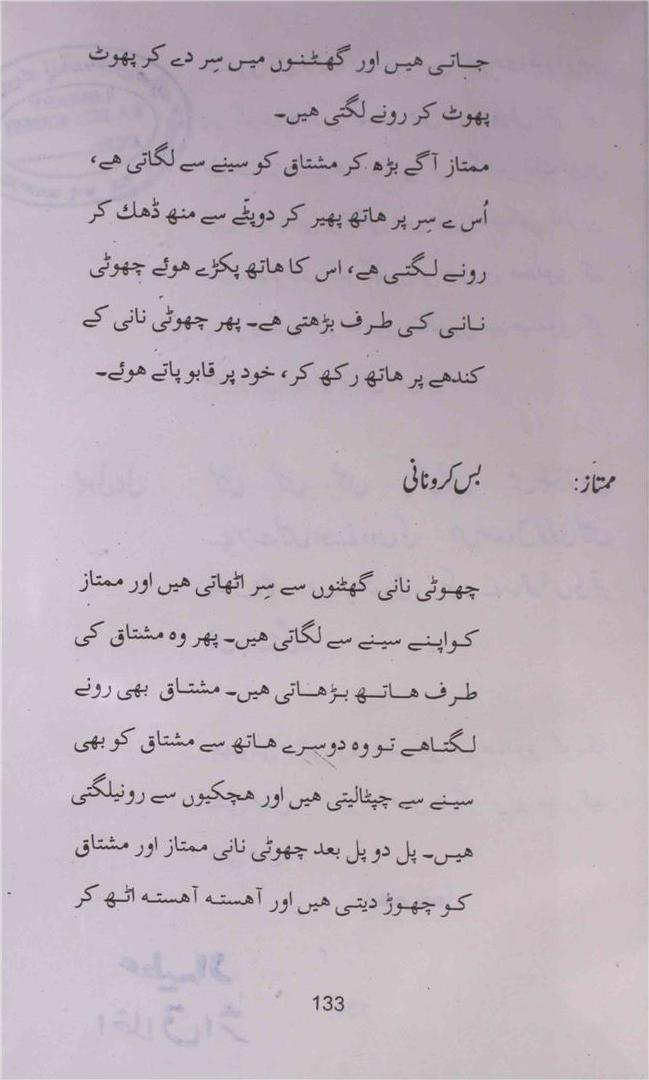 جاتی هیں اور گھٹنوں میں سِر دے کر پھوٹ
پھوٹ کر رونے لگتی هیں۔
ممتاز آگے بڑھ کر مشتاق کو سینے سے لگاتی هے،
اُس ے سِر پر هاتھ پھیر کر دوپٹّے سے منھ ڈھك کر
رونے لگتی هے، اس کا هاتھ پکڑے هوئے چھوٹی
نانی کی طرف بڑھتی هے۔ پھر چھوٹی نانی کے
کندھے پر هاتھ رکھ کر، خود پر قابو پاتے هوئے۔
ممتاز: بس کرو نانی
چھوٹی نانی گھٹنوں سے سِر اٹھاتی هیں اور ممتاز
کواپنے سینے سے لگاتی هیں۔ پھر وه مشتاق کی
طرف هاتھ بڑھاتی هیں۔ مشتاق بھی رونے
لگتاهے تو وه دوسرے هاتھ سے مشتاق کو بھی
سینے سے چپٹالیتی هیں اور هچکیوں سے رونیلگتی
هیں۔ پل دو پل بعد چھوٹی نانی ممتاز اور مشتاق
کو چھوڑ دیتی هیں اور آهسته آهسته اٹھ کر
133